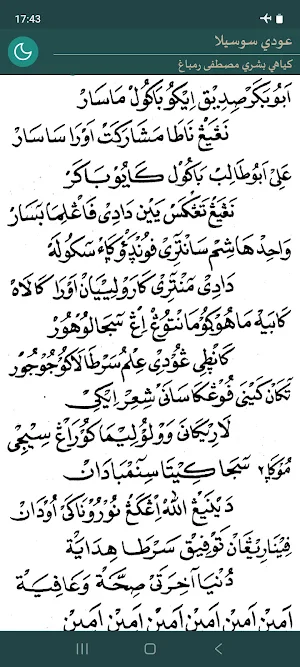 17:43
عودي سوسيلا
كياهي بشري مصطفى رمباغ
اَبُوبَكَرْ صِدِيقْ اِيْكُو بَاكُولْ مَاسَارْ
نَڠِيڠْ نَاطَا مَشَارَكَتْ اَوْرَا سَاسَارْ
عَلِى اَبُو طَالِبْ بَاكُولْ كَايُوْ بَاكَرْ
نَڠِيڠْ تَڠْكَسْ يَيْن دَادِى ڤَاڠْلِيمَا بَسَارْ
وَاحِدْ هَاشِمْ سَانْتْرِى ڤَوْنْدَوْءْ كَاءْ سَكُولَهْ
دَادِى مَنْتْرِى كَارَوْلِيْيَانْ اَوْرَا كَالَاهْ
كَابَيْهْ مَاهُوْ كُوْمَانْتُوْڠْ اِڠْ سَجَا لُوْهُوْرْ
كَانْطِى ڠُوْدِى عِلْمُ سَرْطَا لَاكُوْ جُوْجُوْرْ
تَكَانْ كَيْنَى ڤُوْڠْكَاسَانَى شِعِرْ اِيْكِى
لَارِيْكَانَى وَوْلُوْلِيْمَا كُوْرَاڠْ سِيْجِى
مُوْڮَا٢ سَجَا كِيْتَا سِنَمْبَادَانْ
دَيْنَيْڠْ اللهْ اِڠْكَڠْ نُوْرُوْنَاكَى اُوْدَانْ
ڤِيْنَارِيْڠَانْ تَوْفِيْقْ سَرْطَا هِدَايَةْ
دُنْيَا آخِرَتَى صِحَّةْ وَعَافِيَةْ
اَمِيْنْ اَمِيْنْ اَمِيْنْ اَمِيْنْ اَمِيْنْ اَمِيْنْ